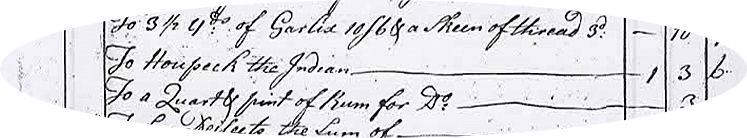 To 3 1/2 Yds of Garlix 10/6 & a Skeen of thread 3d. — 10
To Houpeck the Indian — 1 3 6
To a Quart & pint of Rum for Do. — 3
the Sum of —